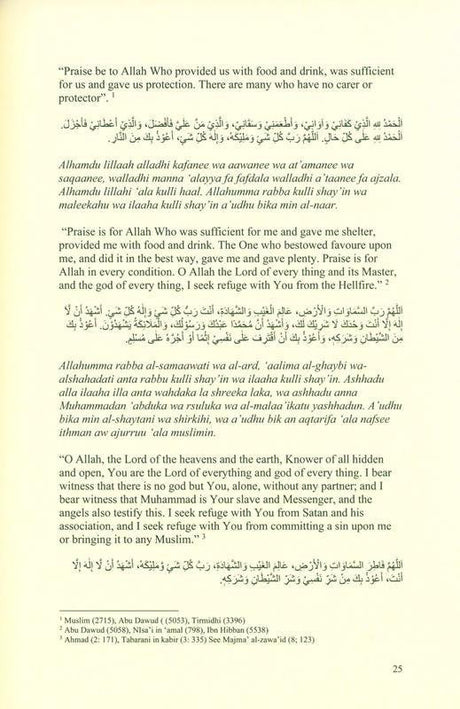 “Praise be to Allah Who provided us with food and drink, was sufficient
for us and gave us protection. There are many who have no carer or
protector”. 1
اَلْحَمْدُ لِلهِ الَّذِيْ كَفَانِيْ وَآوَانِيْ، وَأَطْعَمَنِيْ وَسَقَانِيْ، وَالَّذِيْ مَنَّ عَلَيَّ فَأَفْضَلَ، وَالَّذِيْ أَعْطَانِيْ فَأَجْزَلَ.
اَلْحَمْدُ لِلهِ عَلَى كُلِّ حَالٍ. اَللّهُمَّ رَبَّ كُلِّ شَيْءٍ وَمَلِيْكَهُ، وَإِلهَ كُلِّ شَيْءٍ، أَعُوْذُ بِكَ مِنَ النَّارِ.
Alhamdu lillaah alladhi kafanee wa aawanee wa at’amanee wa
saqaanee, walladhi manna ‘alayya fa fafdala walladhi a’taanee fa ajzala.
Alhamdu lillahi ‘ala kulli haal. Allahumma rabba kulli shay’in wa
maleekahu wa ilaaha kulli shay’in a’udhu bika min al-naar.
“Praise is for Allah Who was sufficient for me and gave me shelter,
provided me with food and drink. The One who bestowed favoure upon
me, and did it in the best way, gave me and gave plenty. Praise is for
Allah in every condition. O Allah the Lord of every thing and its Master,
and the god of every thing, I seek refuge with You from the Hellfire.” 2
اَللّهُمَّ رَبَّ السَّمَاوَاتِ وَالْأَرْضِ، عَالِمَ الْغَيْبِ وَالشَّهَادَةِ، أَنْتَ رَبُّ كُلِّ شَيْءٍ وَإِلهُ كُلِّ شَيْءٍ. أَشْهَدُ أَنْ لَّا
إِلهَ إِلَّا أَنْتَ وَحْدَكَ لَا شَرِيْكَ لَكَ، وَأَشْهَدُ أَنَّ مُحَمَّدًا عَبْدُكَ وَرَسُوْلُكَ، وَالْمَلَائِكَةُ يَشْهَدُوْنَ. أَعُوْذُ بِكَ
مِنَ الشَّيْطَانِ وَشَرَكِهِ، وَأَعُوْذُ بِكَ أَنْ أَقْتَرِفَ عَلَى نَفْسِيْ إِثْمًا أَوْ أَجُرَّهُ عَلَى مُسْلِمٍ.
Allahumma rabba al-samaawati wa al-ard, ‘aalima al-ghaybi wa-
alshahadati anta rabbu kulli shay’in wa ilaaha kulli shay’in. Ashhadu
alla ilaaha illa anta wahdaka la shreeka laka, wa ashhadu anna
Muhammadan ‘abduka wa rsuluka wa al-malaa’ikatu yashhadun. A’udhu
bika min al-shaytani wa shirkihi, wa a’udhu bik an aqtarifa ‘ala nafsee
ithman aw ajurruu ‘ala muslimin.
“O Allah, the Lord of the heavens and the earth, Knower of all hidden
and open, You are the Lord of everything and god of every thing. I bear
witness that there is no god but You, alone, without any partner; and I
bear witness that Muhammad is Your slave and Messenger, and the
angels also testify this. I seek refuge with You from Satan and his
association, and I seek refuge with You from committing a sin upon me
or bringing it to any Muslim.” 3
اَللّهُمَّ فَاطِرَ السَّمَاوَاتِ وَالْأَرْضِ، عَالِمَ الْغَيْبِ وَالشَّهَادَةِ، رَبَّ كُلِّ شَيْءٍ وَمَلِيْكَهُ، أَشْهَدُ أَنْ لَّا إِلهَ إِلَّا
أَنْتَ، أَعُوْذُ بِكَ مِنْ شَرِّ نَفْسِيْ وَشَرِّ الشَّيْطَانِ وَشَرَكِهِ.
1 Muslim (2715), Abu Dawud ( (5053), Tirmidhi (3396)
2 Abu Dawud (5058), NIsa’i in ‘amal (798), Ibn Hibban (5538)
3 Ahmad (2: 171), Tabarani in kabir (3: 335) See Majma’ al-zawa’id (8; 123)
25